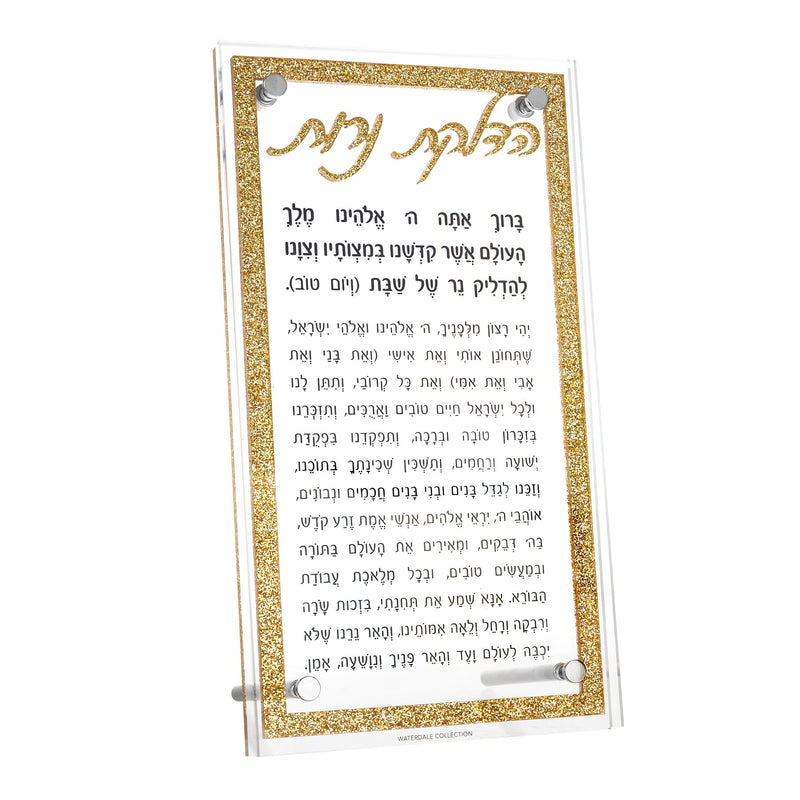 הדלקת נרות
בָּרוּךְ אַתָּה ה' אֱלֹהֵינוּ מֶלֶךְ
הָעוֹלָם אֲשֶׁר קִדְּשָׁנוּ בְּמִצְוֹתָיו וְצִוָּנוּ
לְהַדְלִיק נֵר שֶׁל שַׁבָּת (וְיוֹם טוֹב).
יְהִי רָצוֹן מִלְּפָנֶיךָ, ה' אֱלֹהֵינוּ וֵאלֹהֵי יִשְׂרָאֵל,
שֶׁתְּחוֹנֵן אוֹתִי וְאֶת אִישִׁי (וְאֶת בָּנַי וְאֶת
אָבִי וְאֶת אִמִּי) וְאֶת כָּל קְרוֹבַי, וְתִתֵּן לָנוּ
וּלְכָל יִשְׂרָאֵל חַיִּים טוֹבִים וַאֲרֻכִּים, וְתִזְכְּרֵנוּ
בְּזִכְרוֹן טוֹבָה וּבְרָכָה, וְתִפְקְדֵנוּ בִּפְקֻדַּת
יְשׁוּעָה וְרַחֲמִים, וְתַשְׁכִּין שְׁכִינָתְךָ בְּתוֹכֵנוּ,
וְזַכֵּנוּ לְגַדֵּל בָּנִים וּבְנֵי בָנִים חֲכָמִים וּנְבוֹנִים,
אוֹהֲבֵי ה', יִרְאֵי אֱלֹהִים, אַנְשֵׁי אֱמֶת זֶרַע קֹדֶשׁ,
בַּה' דְּבֵקִים, וּמְאִירִים אֶת הָעוֹלָם בַּתּוֹרָה
וּבְמַעֲשִׂים טוֹבִים, וּבְכָל מְלֶאכֶת עֲבוֹדַת
הַבּוֹרֵא. אָנָּא שְׁמַע אֶת תְּחִנָּתִי, בִּזְכוּת שָׂרָה
וְרִבְקָה וְרָחֵל וְלֵאָה אִמּוֹתֵינוּ, וְהָאֵר נֵרֵנוּ שֶׁלֹּא
יִכְבֶּה לְעוֹלָם וָעֶד וְהָאֵר פָּנֶיךָ וְנִוָּשֵׁעָה, אָמֵן.
WATERDALE COLLECTION